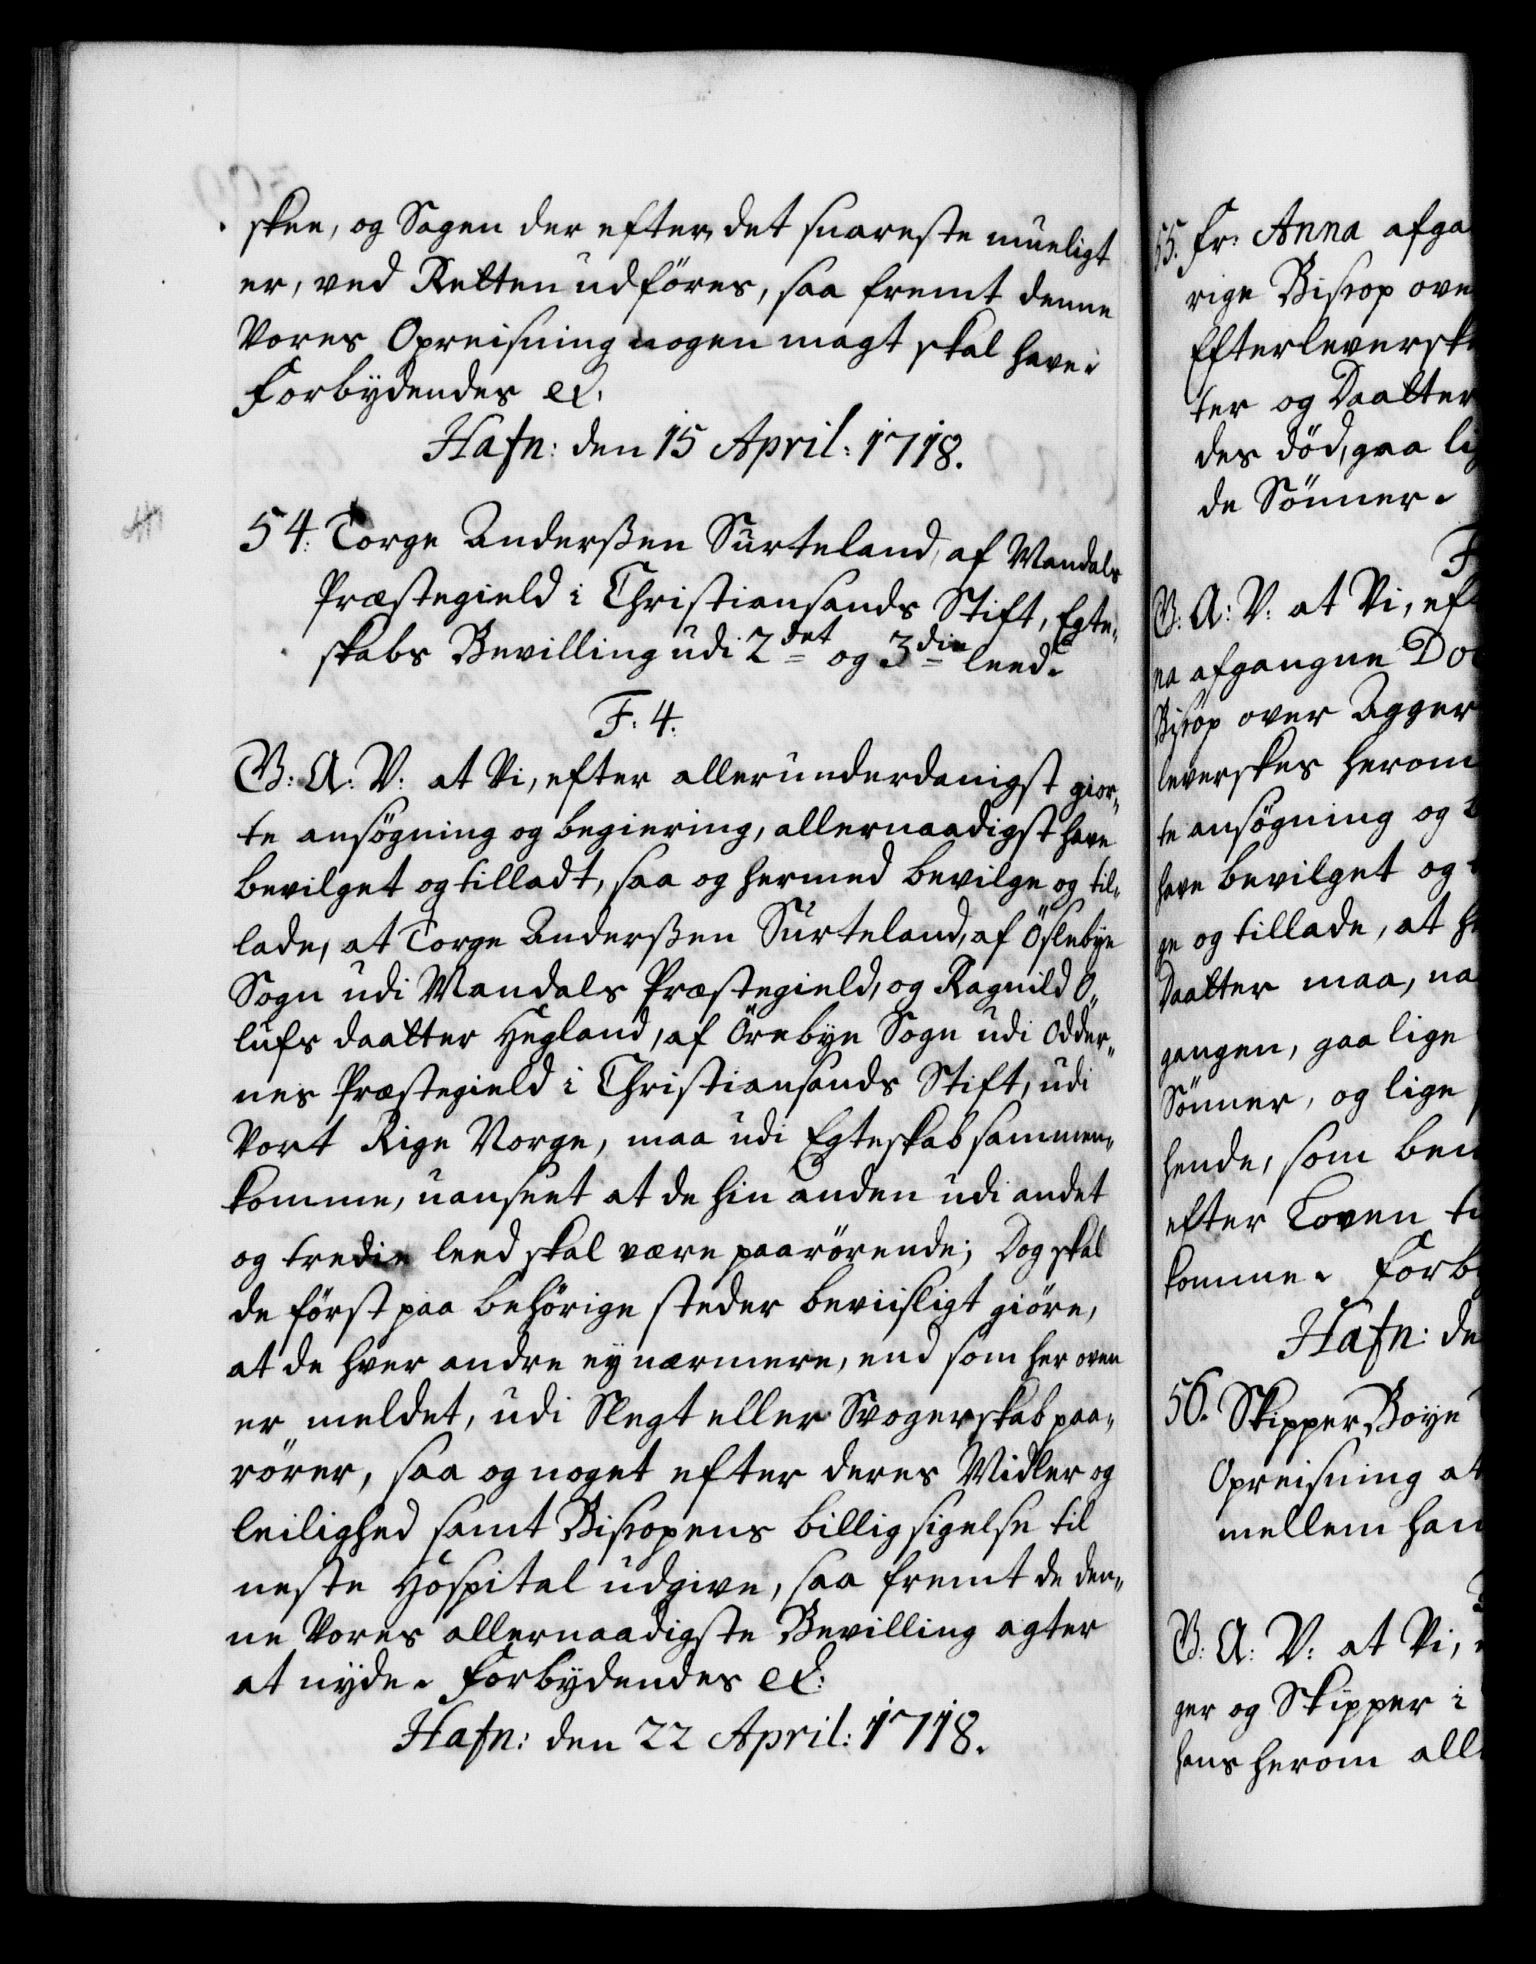 skee, og Sagen der efter, det snareste mueligt
er, ved Retten udföres, saa fremt denne
Vores Opreisning nogen magt skal have.
Forbydendes etc.
Hafn: den 15 April: 1718.
54. Torge Anderßen Surteland, af Mandals
Præstegield i Christiansands Stift, Egte-
skabs Bevilling udi 2det og 3die leed.
F. 4.
G: A: V: at Vi, efter allerunderdanigst gior-
te ansögning og begiering, allernaadigst have
bevilget og tilladt, saa og hermed bevilge og til-
lade, at Torge Anderßen Surteland, af Öslebye
Sogn udi Mandals Præstegield, og Ragnild O-
lufs daatter Hegland, af Örebye Sogn udi Odder-
nes Præstegield i Christiansands Stift, udi
Vort Rige Norge, maa udi Egteskab sammen-
komme, uanseet at de hin anden udi andet
og tredie leed skal være paarörende; Dog skal
de först paa behörige steder beviisligt giöre,
at de hver andre ey nærmere, end som her oven
er meldet, udi Slegt eller Svogerskab paa-
rörer, saa og noget efter deres Midler og
leilighed samt Biscopens billig sigelse til
neste Hospital udgive, saa fremt de den-
ne Vores allernaadigste Bevilling agter
at nyde. Forbydendes etc:
Hafn: den 22 April: 1718.
55. Fr: Anna afga
rige Biscop ove
Efterleversk
ter og Daatter
des död, gaa li
de Sönner.
F
G: A: V: at Vi, ef
na afgangne Do
Biscop over Agger
leverskes herom
te ansögning og b
have bevilget og
ge og tillade, at h
Daatter maa, na
gangen, gaa lige
Sönner, og lige
hende, som ben
efter Loven ti
komme. Forb
Hafn: de
56. Skipper Boye
Opreisning at
mellem han
G: A: V: at Vi,
ger og Skipper i
hans herom all